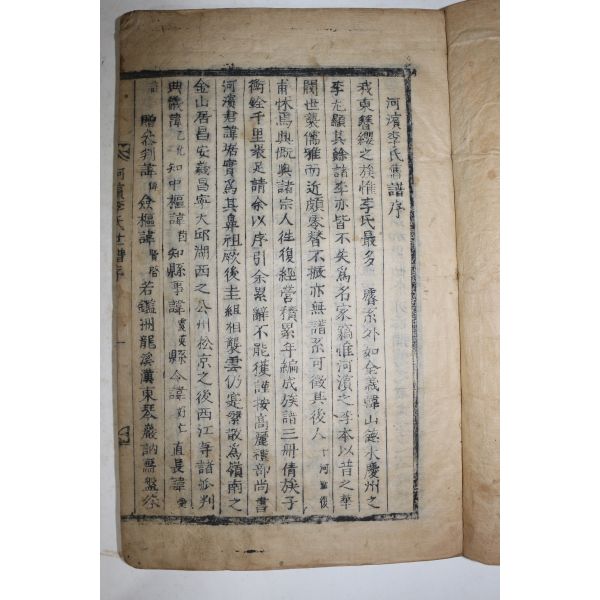 河濱李氏舊譜序
我東簪纓之族惟李氏最多 璿系外如全義韓山德水慶州之
李尤顯其餘諸李亦皆不失為名家竊惟河濱之李本以昔之華
閥世襲儒雅而近頗零替不振亦無譜系可徵其後人 河濱後
甫怵焉興慨與諸宗人往復經營積累年編成族譜三冊倩族子
衡銓千里裝足請余以序引余累辭不能獲謹按高麗禮部尚書
河濱君諱琚實為其鼻祖厥後圭組相襲雲仍寔繁散為嶺南之
金山居昌安義昌寧大邱湖西之公州松京之後西江等諸派判
典儀諱 知中樞諱 知縣事諱 縣令諱 直長諱
贈參判諱 僉樞諱 若鑑洲龍溪漢東琴巖訥無盤谷
河濱李氏世譜序